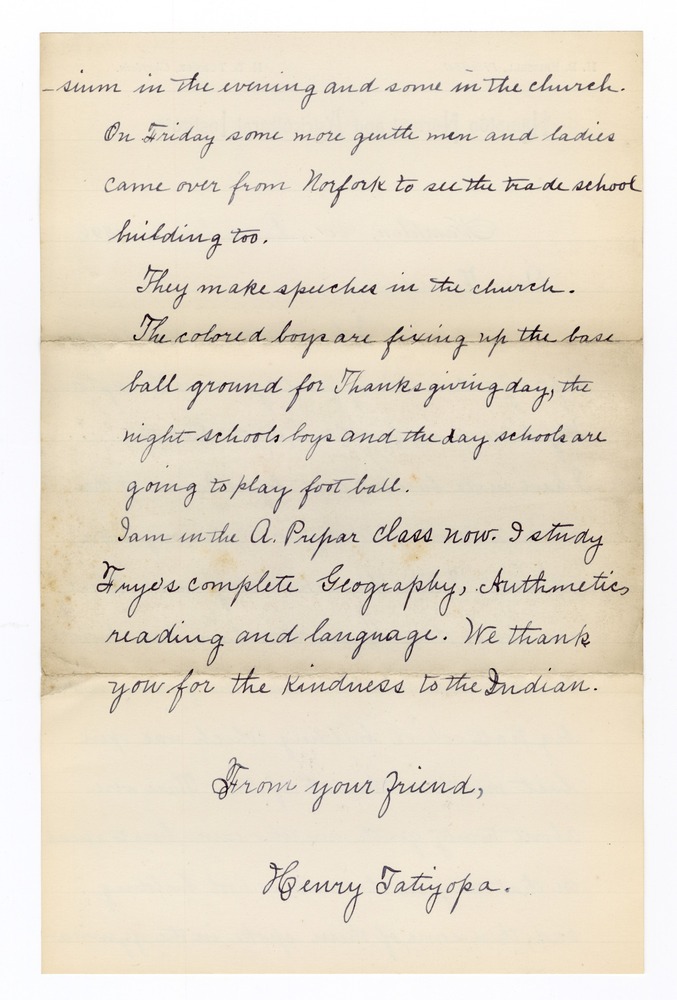 -sium in the evening and some in the church.
On Friday some more gentle men and ladies
came over from Norfork to see the trade school
building too.
They make speeches in the church.
The colored boys are fixing up the base
ball ground for Thanksgiving day, the
night schools boys and the day schools are
going to play foot ball.
I am in the A. Prepar class now. I study
Frye's complete Geography, Authmetics
reading and language. We thank
you for the kindness to the Indian.
From your friend,
Henry Tatiyopa.